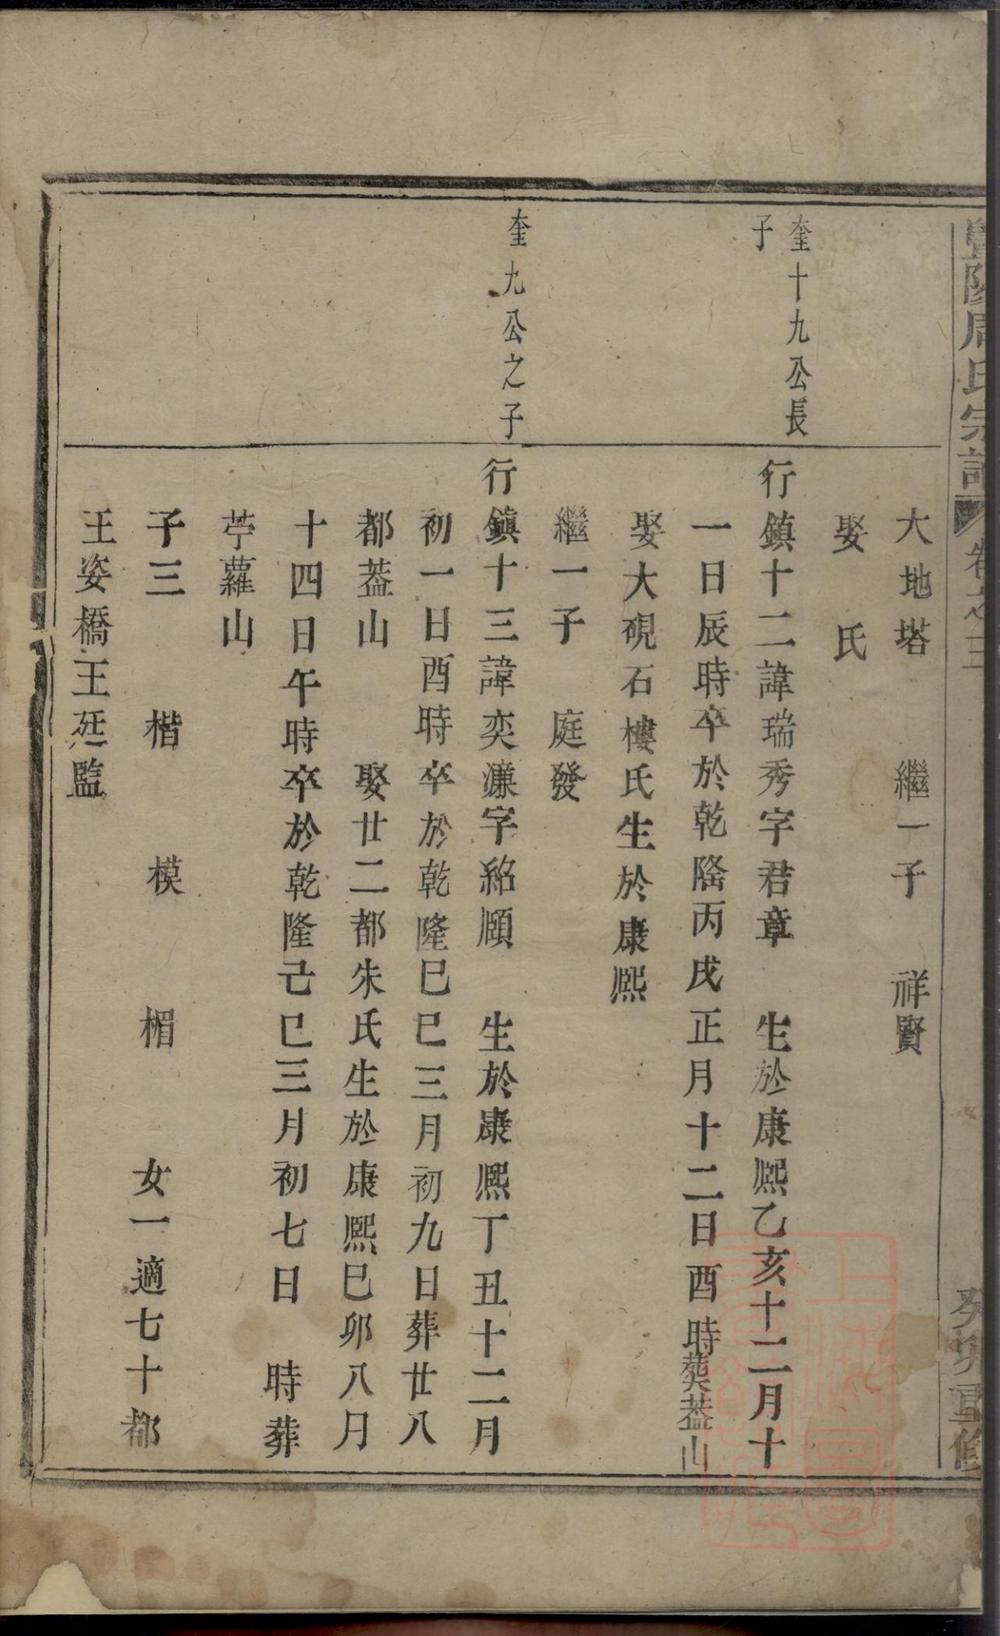 暨陽周氏宗譜 卷之三 癸卯重修
大地塔 繼一子 祥賢
娶 氏
奎十九公長
子
行鎮十二諱瑞秀字君章 生於康熙乙亥十二月十
一日辰時卒於乾隆丙戌正月十二日酉時葬葢山
娶大硯石樓氏生於康熙
繼一子 庭發
奎九公之子
行鎮十三諱奕濂字紹頤 生於康熙丁丑十二月
初一日酉時卒於乾隆巳巳三月初九日葬廿八
都葢山 娶廿二都朱氏生於康熙巳卯八月
十四日午時卒於乾隆己巳三月初七日 時葬
苧蘿山
子三 楷 模 楣 女一適七十都
王姿橋王廷監